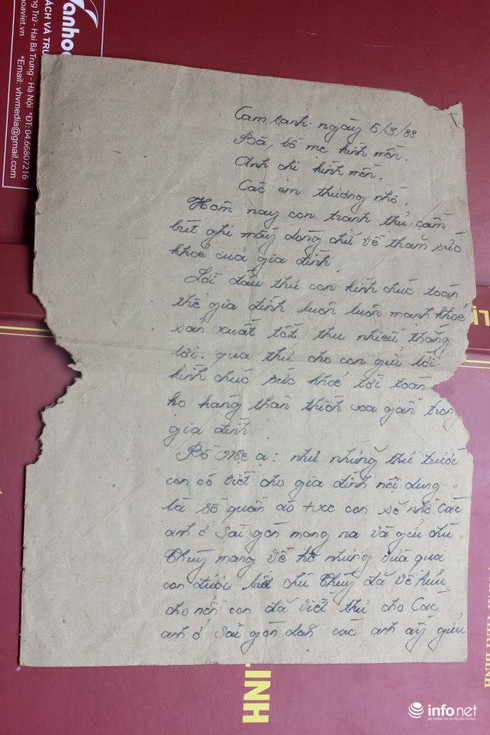 anhoa
ÁCH VÀ TRU
ng Trứ - Hai Bà Trưng - Hà Nội *ĐT: 04.66807216
*Email: vhvmedia@gmail.com
oaviet.vn
Cam Ranh ngày 5/3/88
Bà, bố mẹ kính mến.
Anh chị kính mến.
Các em thương nhớ.
Hôm nay con tranh thủ cầm
bút ghi mấy dòng chữ về thăm sức
khoẻ của gia đình.
Lời đầu thư con kính chúc toàn
thể gia đình luôn luôn mạnh khoẻ
sản xuất tốt thu nhiều thắng
lợi. qua thư cho con gửi lời
kính chúc sức khoẻ tới toàn
họ hàng thân thích xa gần trong
gia đình.
Bố Mẹ ạ: như những thư trước
con có viết cho gia đình nội dung
là số quần áo + xc con sẽ nhờ các
anh ở Sài gòn mang ra và gửi chú
Thuỷ mang về hộ nhưng vừa qua
con được biết chú Thuỷ đã về hưu
cho nên con đã viết thư cho các
anh ở Sài gòn dặn các anh ấy gửi
LINH
infonet